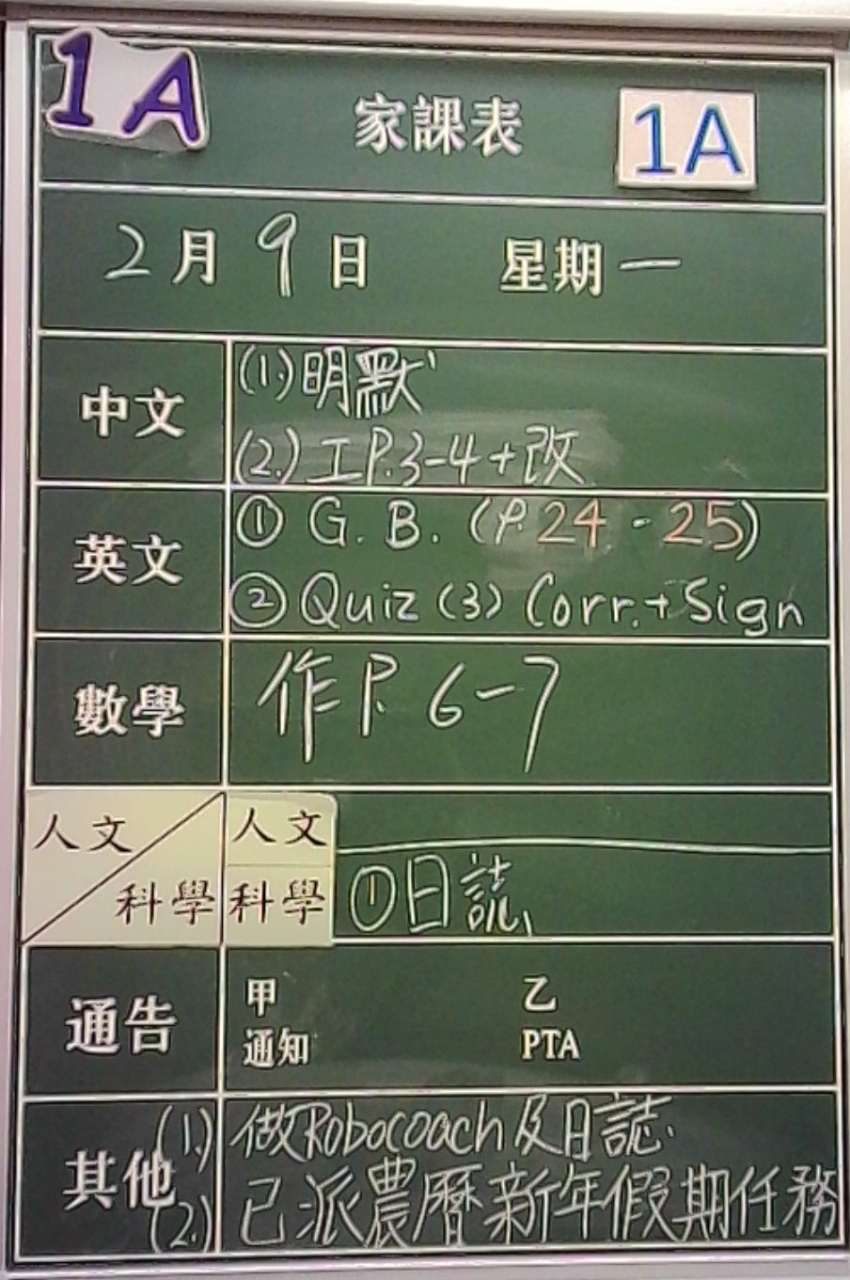 1A
家課表
1A
2月9日 星期一
中文
(1.)明默
(2.)工P.3-4+改
英文
① G. B. (P. 24 - 25)
② Quiz (3) Corr.+Sign
數學
作P. 6-7
人文
科學
人文
科學
①日誌
通告
甲 乙
通知 PTA
其他
(1.) 做Robocoach及日誌.
(2.) 已派農曆新年假期任務